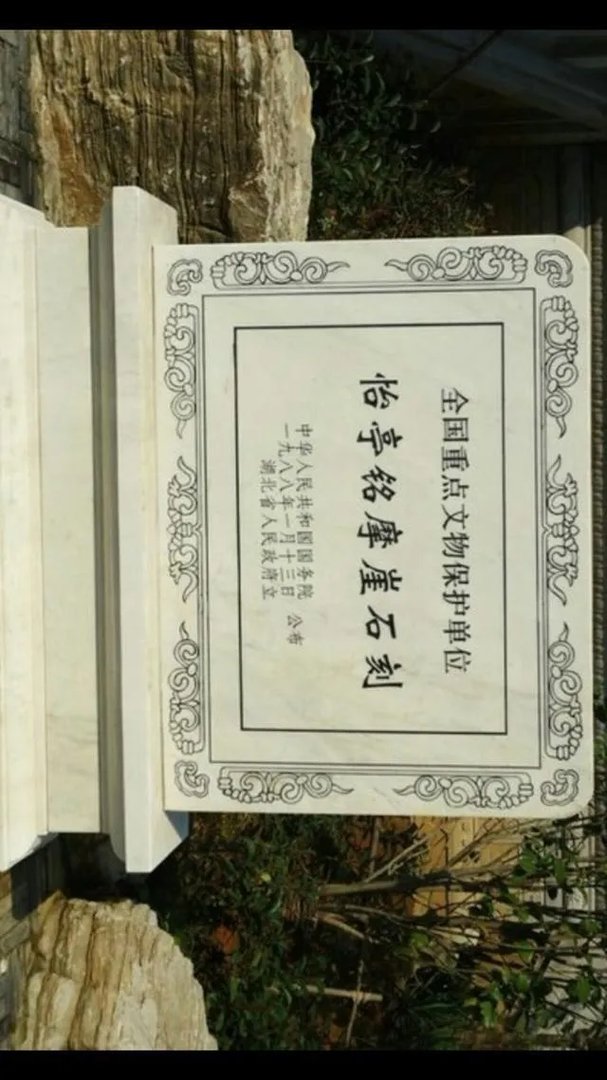 全国重点文物保护单位
怡亭铭摩崖石刻
中华人民共和国国务院 公布
一九八八年一月十三日
湖北省人民政府立